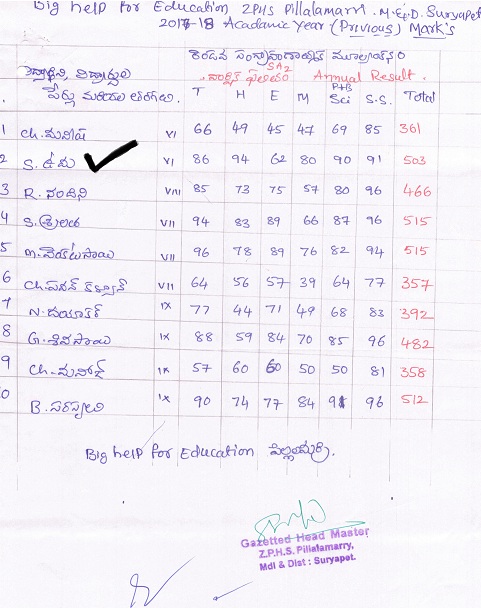 Big help for Education ZPHS Pillalamarri. M&D. Suryapet
2017-18 Acadamic year (Previous) Mark's
SA2
వార్షిక ఫలితం Annual Result.
పేర్లు మరియు తరగతి. T H E M P+B Sci S.S. Total
1 Ch. మనీష VI 66 49 45 47 69 85 361
2 S. ఉమ VI 86 94 62 80 90 91 503
3 R. నందిని VIII 85 73 75 57 80 96 466
4 S. శ్రీలత VII 94 83 89 66 87 96 515
5 m. వెంకటసాయి VII 96 78 89 76 82 94 515
6 Ch. పవన్ కళ్యాణ్ VII 64 56 57 39 64 77 357
7 N. దయాకర్ IX 77 44 71 49 68 83 392
8 G. శివసాయి IX 88 59 84 70 85 96 482
9 Ch. మనోజ్ IX 57 60 60 50 50 81 358
10 B. పరశ్యాలు IX 90 74 77 84 91 96 512
Big help for Education పిల్లలమర్రి.
Gazetted Head Master
Z.P.H.S. Pillalamarry,
Mdl & Dist : Suryapet.